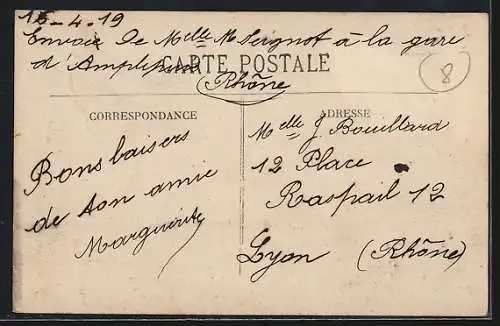 15-4-19
Envoie de Melle M Sergnot à la gare
d'Amplepuis
CARTE POSTALE
(Rhône)
8
CORRESPONDANCE
ADRESSE
Bons baisers
de ton amie
Marguerite
Melle J. Bouillard
12 Place
Raspail 12
Lyon (Rhône)